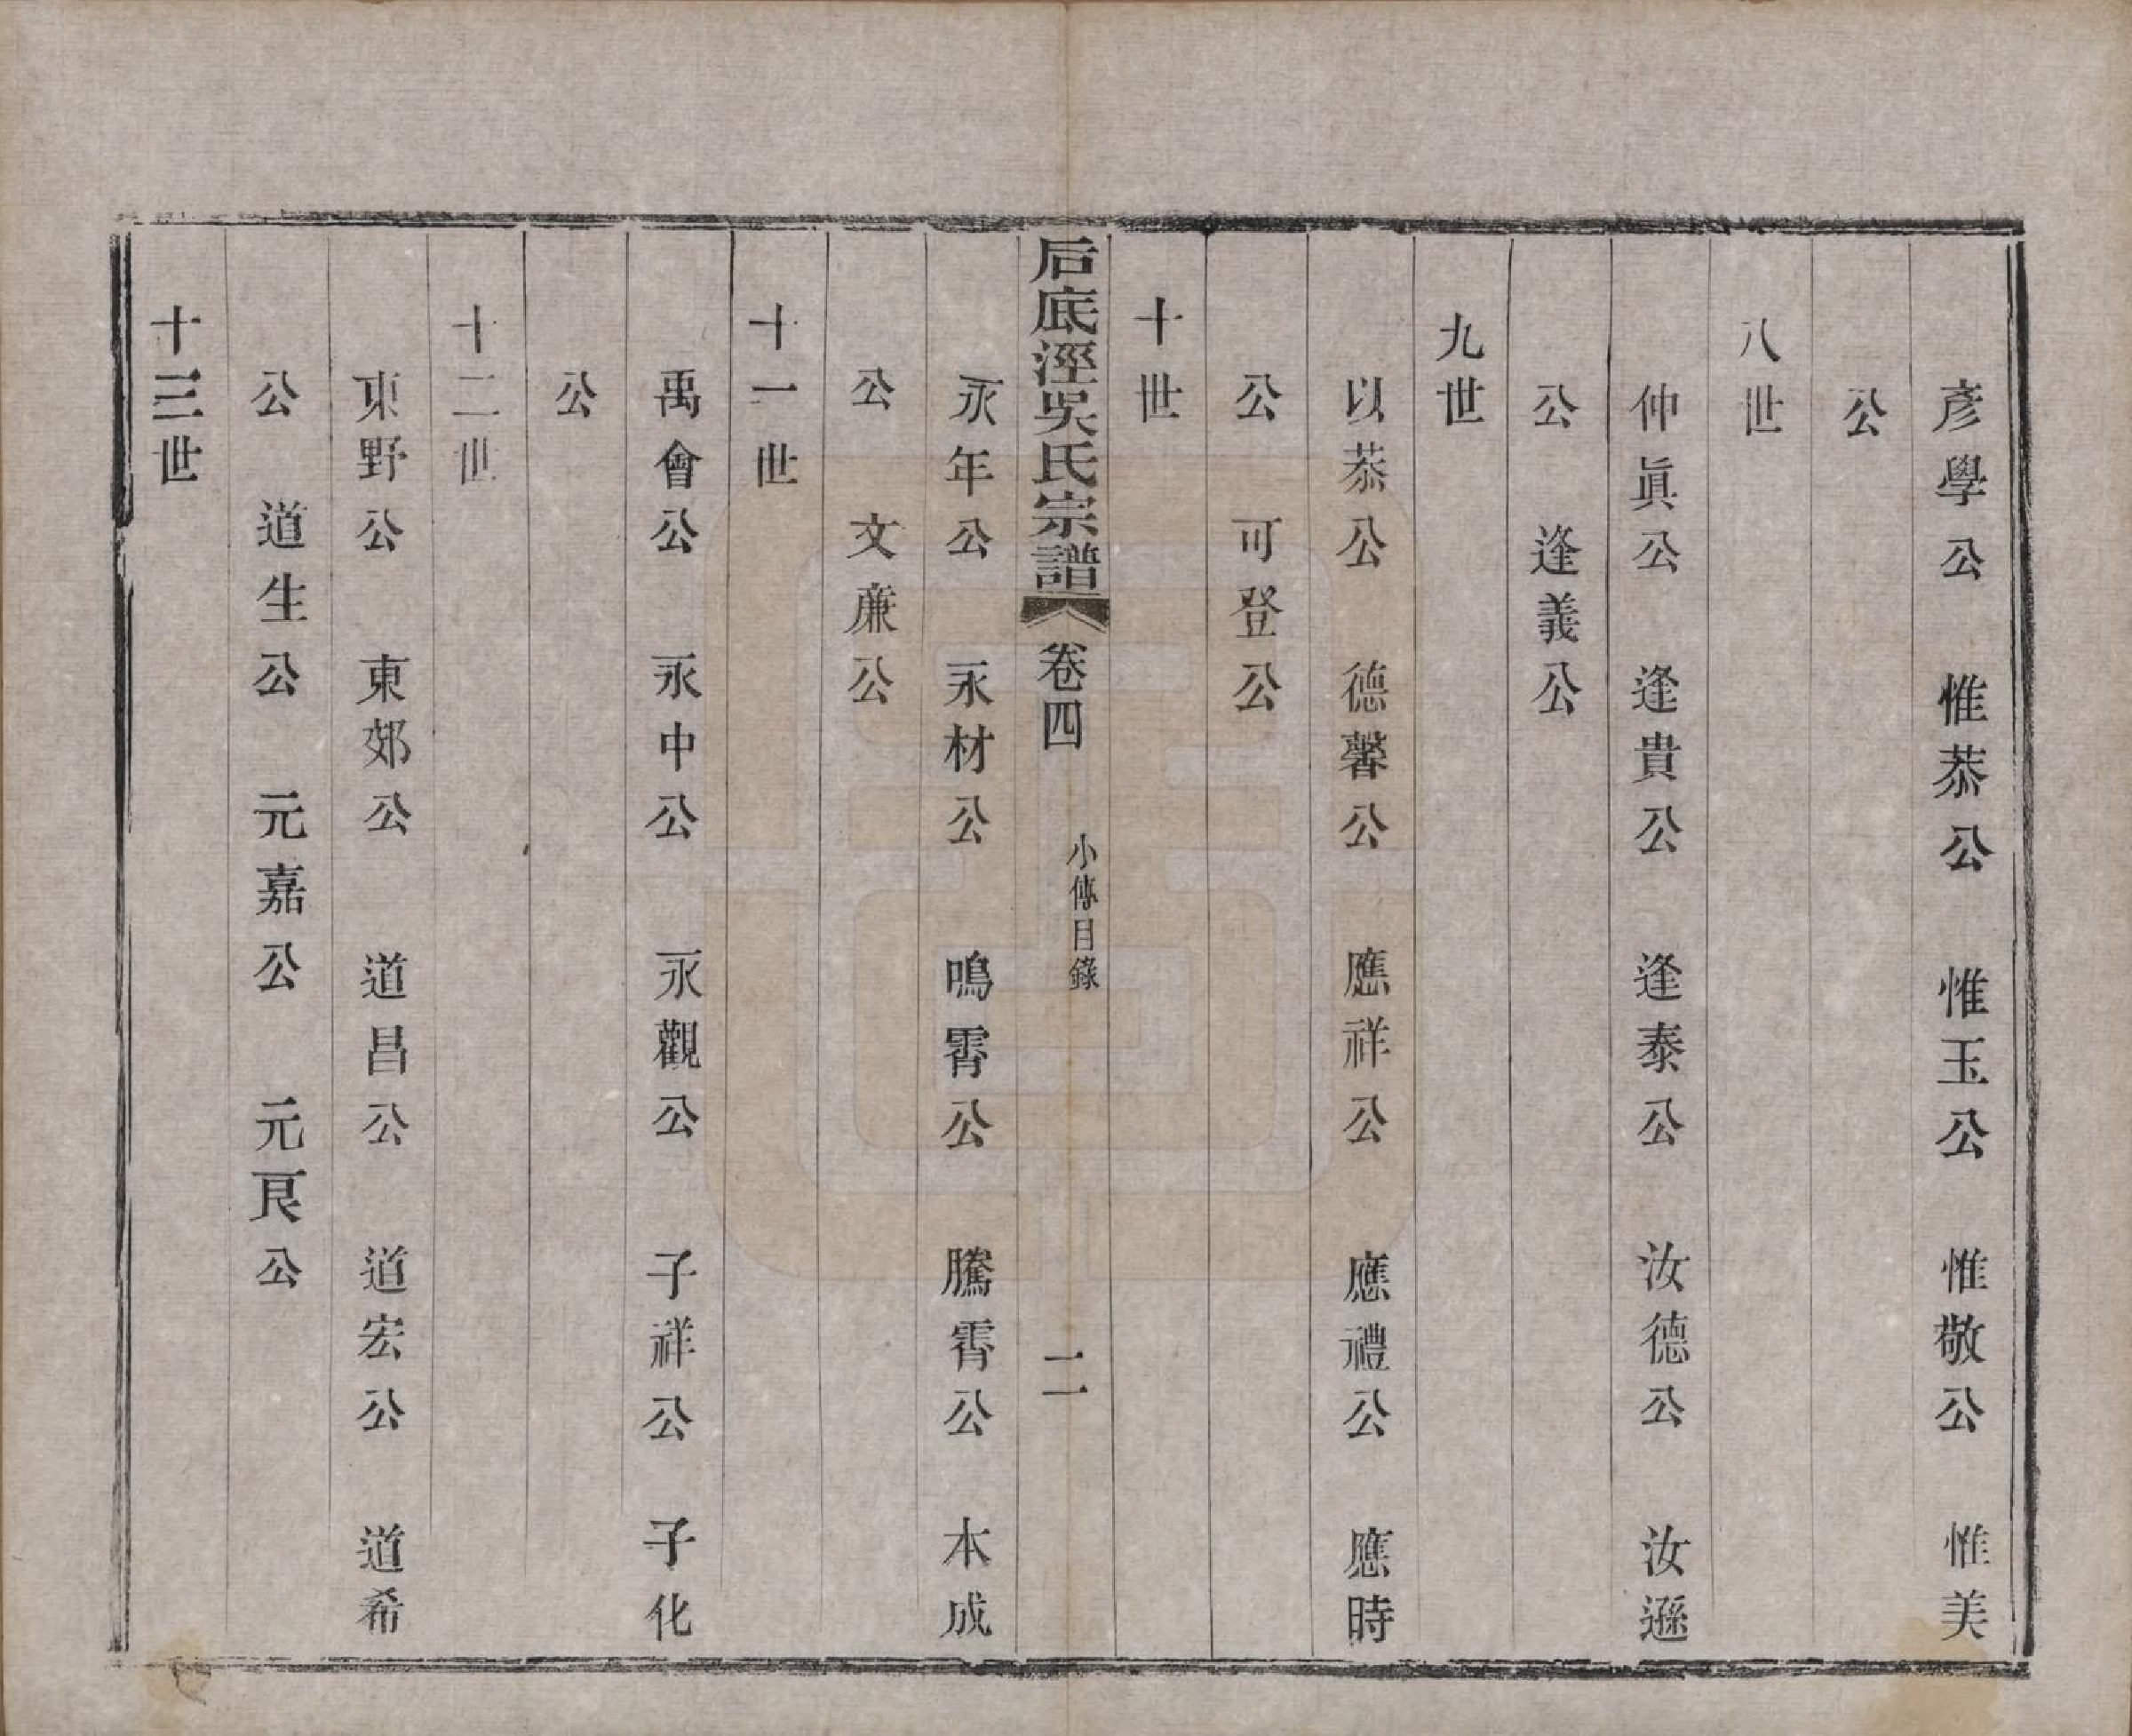 彥學公　惟恭公　惟玉公　惟敬公　惟美
公
八世
仲眞公　逢貴公　逢泰公　汝德公　汝遜
公　逢義公
九世
以恭公　德馨公　應祥公　應禮公　應時
公　可登公
十世
后底涇吳氏宗譜　卷四　小傳目錄　二
永年公　永材公　鳴霄公　騰霄公　本成
公　文亷公
十一世
禹會公　永中公　永觀公　子祥公　子化
公
十二世
東野公　東郊公　道昌公　道宏公　道希
公　道生公　元嘉公　元良公
十三世